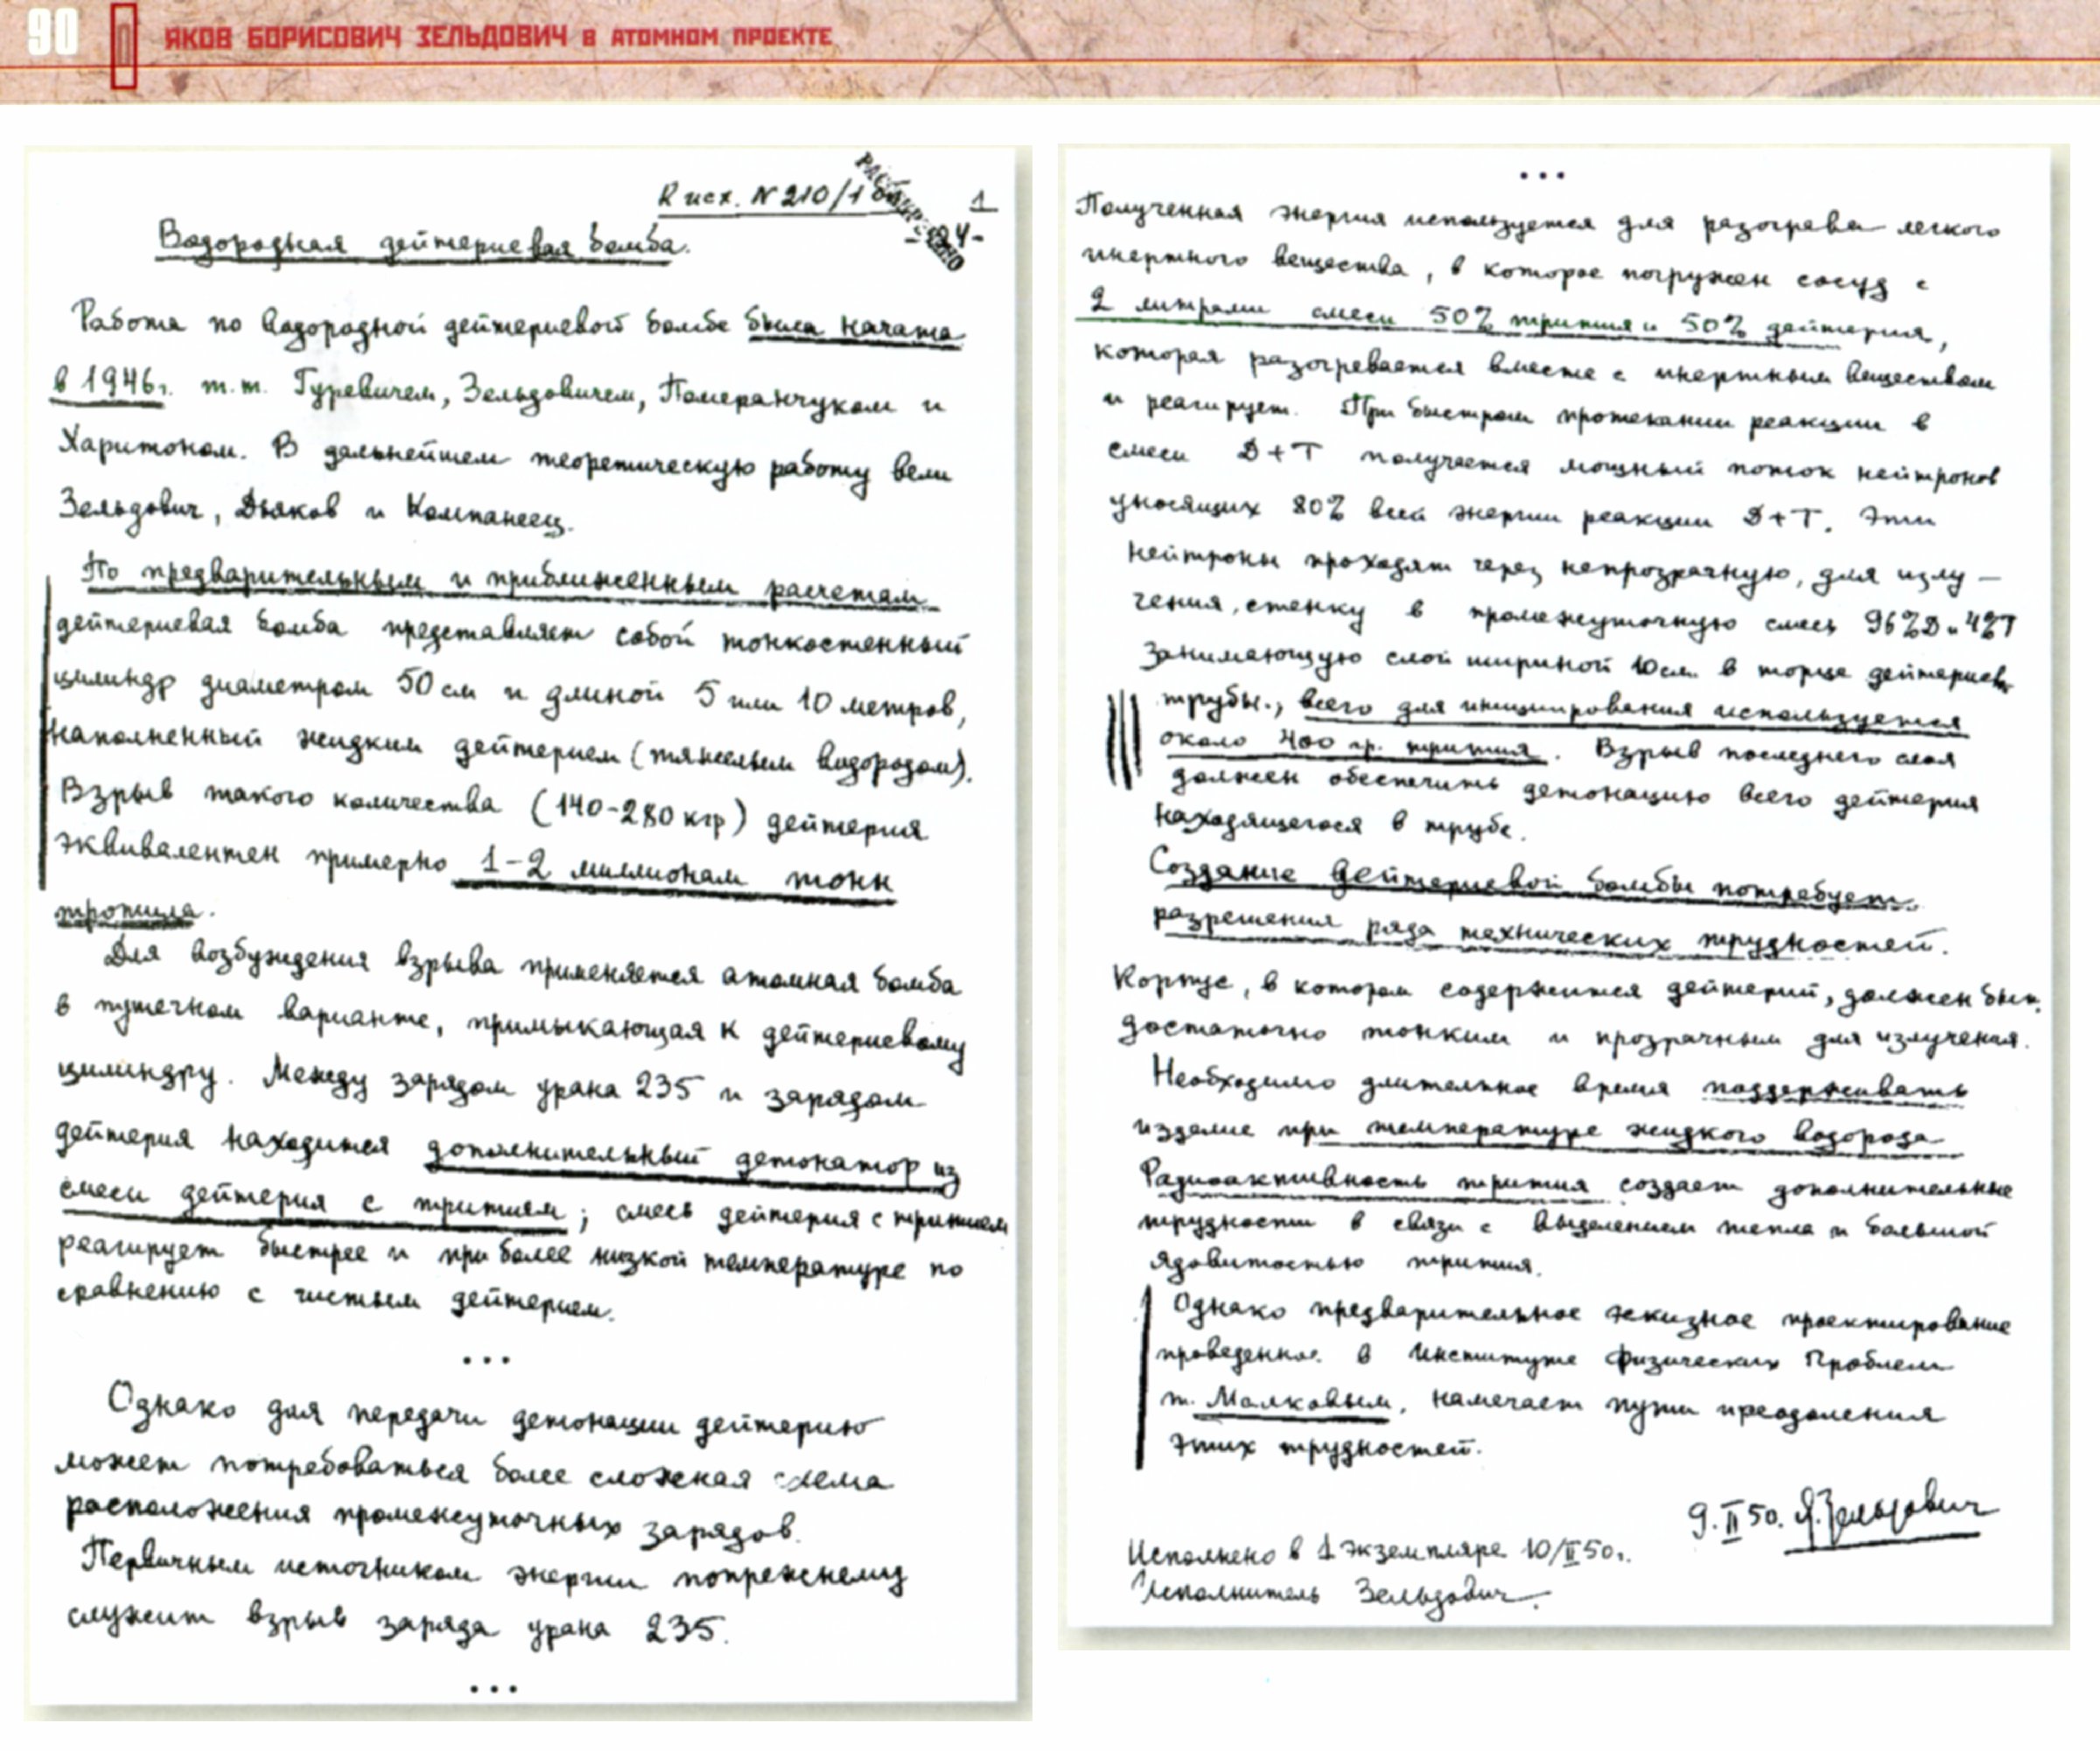 90
ЯКОВ БОРИСОВИЧ ЗЕЛЬДОВИЧ в АТОМНОМ ПРОЕКТЕ
К исх. N 210/1
1
РАССЕКРЕЧЕНО
Водородная дейтериевая бомба.
Работа по водородной дейтериевой бомбе была начата
в 1946г. т.т. Гуревичем, Зельдовичем, Померанчуком и
Харитоном. В дальнейшем теоретическую работу вели
Зельдович, Дьяков и Компанеец.
По предварительным и приближенным расчетам
дейтериевая бомба представляет собой тонкостенный
цилиндр диаметром 50 см и длиной 5 или 10 метров,
наполненный жидким дейтерием (тяжелым водородом).
Взрыв такого количества (140-280 кгр) дейтерия
эквивалентен примерно 1-2 миллионам тонн
тротила.
Для возбуждения взрыва применяется атомная бомба
в пушечном варианте, примыкающая к дейтериевому
цилиндру. Между зарядом урана 235 и зарядом
дейтерия находится дополнительный детонатор из
смеси дейтерия с тритием; смесь дейтерия с тритием
реагирует быстрее и при более низкой температуре по
сравнению с чистым дейтерием.
...
Однако для передачи детонации дейтерию
может потребоваться более сложная схема
расположения промежуточных зарядов.
Первичным источником энергии попрежнему
служит взрыв заряда урана 235.
...
...
Полученная энергия используется для разогрева легкого
инертного вещества, в которое погружен сосуд с
2 литрами смеси 50% трития и 50% дейтерия,
которая разогревается вместе с инертным веществом
и реагирует. При быстром протекании реакции в
смеси D+T получается мощный поток нейтронов
уносящих 80% всей энергии реакции D+T. Эти
нейтроны проходят через непрозрачную, для излу-
чения, стенку в промежуточную смесь 96%D и 4%T
занимающую слой шириной 10 см. в торце дейтериев.
трубы., всего для инициирования используется
около 400 гр. трития. Взрыв последнего слоя
должен обеспечить детонацию всего дейтерия
находящегося в трубе.
Создание дейтериевой бомбы потребует
разрешения ряда технических трудностей.
Корпус, в котором содержится дейтерий, должен быть
достаточно тонким и прозрачным для излучения.
Необходимо длительное время поддерживать
изделие при температуре жидкого водорода
Радиоактивность трития создает дополнительные
трудности в связи с выделением тепла и большой
ядовитостью трития.
Однако предварительное эскизное проектирование
проведенное в Институте Физических Проблем
т. Малковым, намечает пути преодоления
этих трудностей.
9.II 50. Я.Зельдович
Исполнено в 1 экземпляре 10/II 50г.
Исполнитель Зельдович.